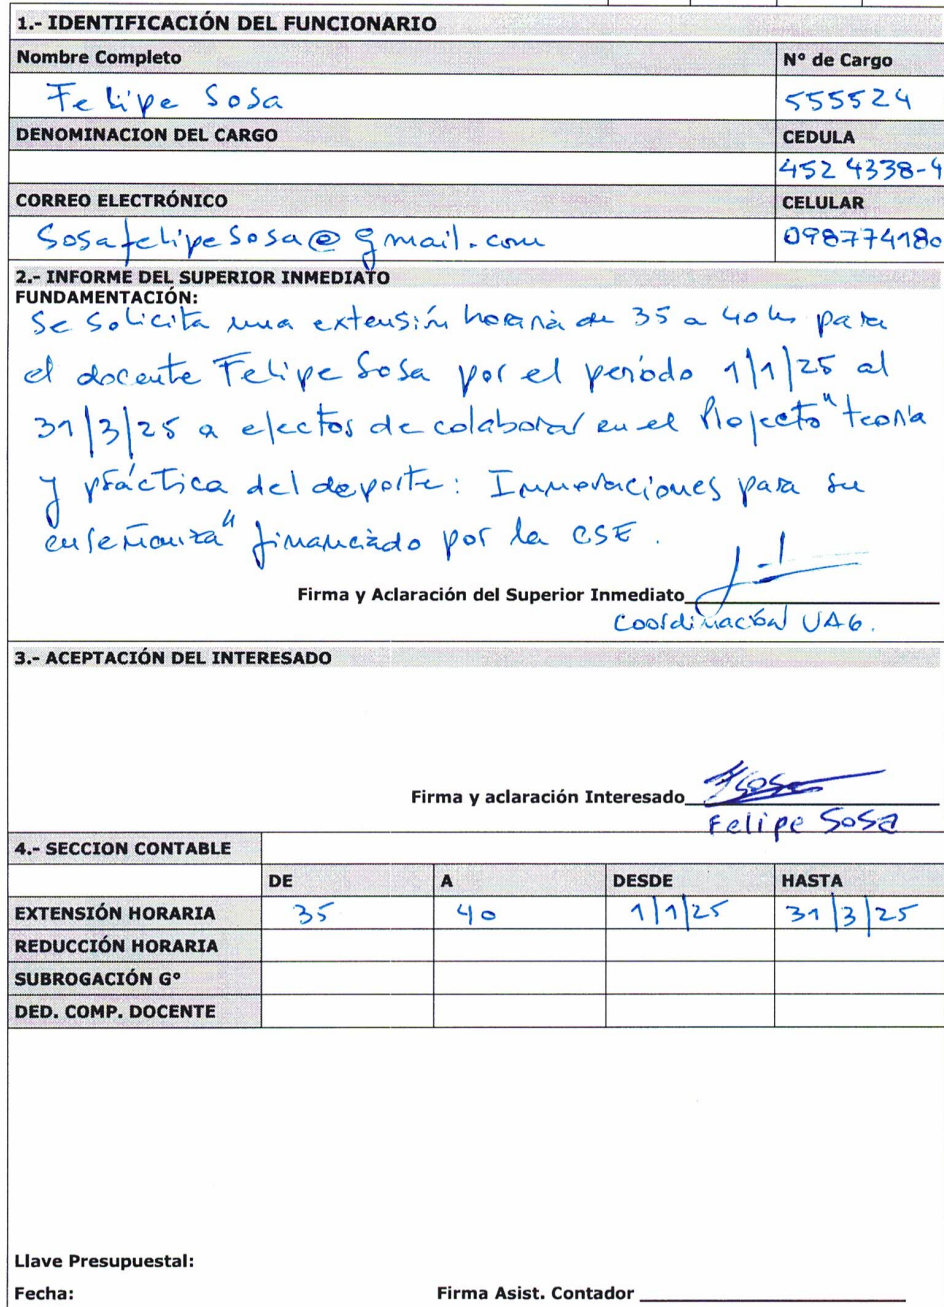 1.- IDENTIFICACIÓN DEL FUNCIONARIO
Nombre Completo N° de Cargo
Felipe Sosa 555524
DENOMINACION DEL CARGO CEDULA
452 4338-4
CORREO ELECTRÓNICO CELULAR
Sosafelipesosa@gmail.com 098774180
2.- INFORME DEL SUPERIOR INMEDIATO
FUNDAMENTACIÓN:
Se solicita una extensión horaria de 35 a 40 hs para
el docente Felipe Sosa por el período 1/1/25 al
31/3/25 a efectos de colaborar en el Projecto "teoría
y práctica del deporte: Innovaciones para su
enseñanza" financiado por la CSE.
Firma y Aclaración del Superior Inmediato
Coordinación UA6.
3.- ACEPTACIÓN DEL INTERESADO
Firma y aclaración Interesado FSosa
Felipe Sosa
4.- SECCION CONTABLE
DE A DESDE HASTA
EXTENSIÓN HORARIA 35 40 1/1/25 31/3/25
REDUCCIÓN HORARIA
SUBROGACIÓN G°
DED. COMP. DOCENTE
Llave Presupuestal:
Fecha: Firma Asist. Contador